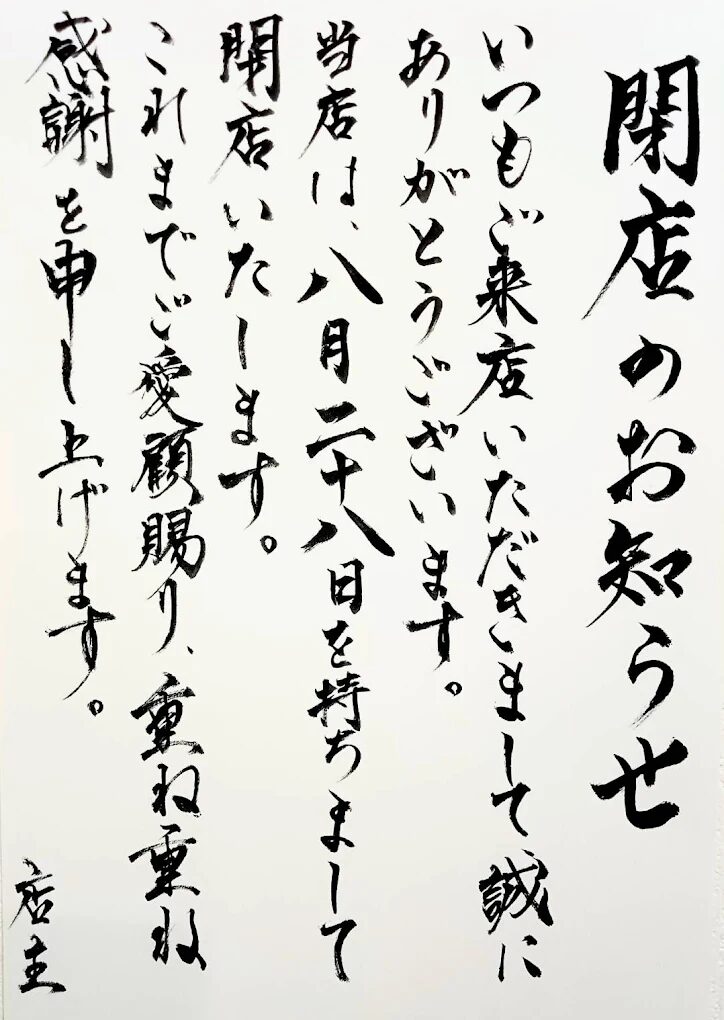 閉店のお知らせ
いつもご来店いただきまして、誠に
ありがとうございます。
当店は、八月二十八日を持ちまして
開店いたします。
これまでご愛顧賜り、重ね重ね
感謝を申し上げます。
店主